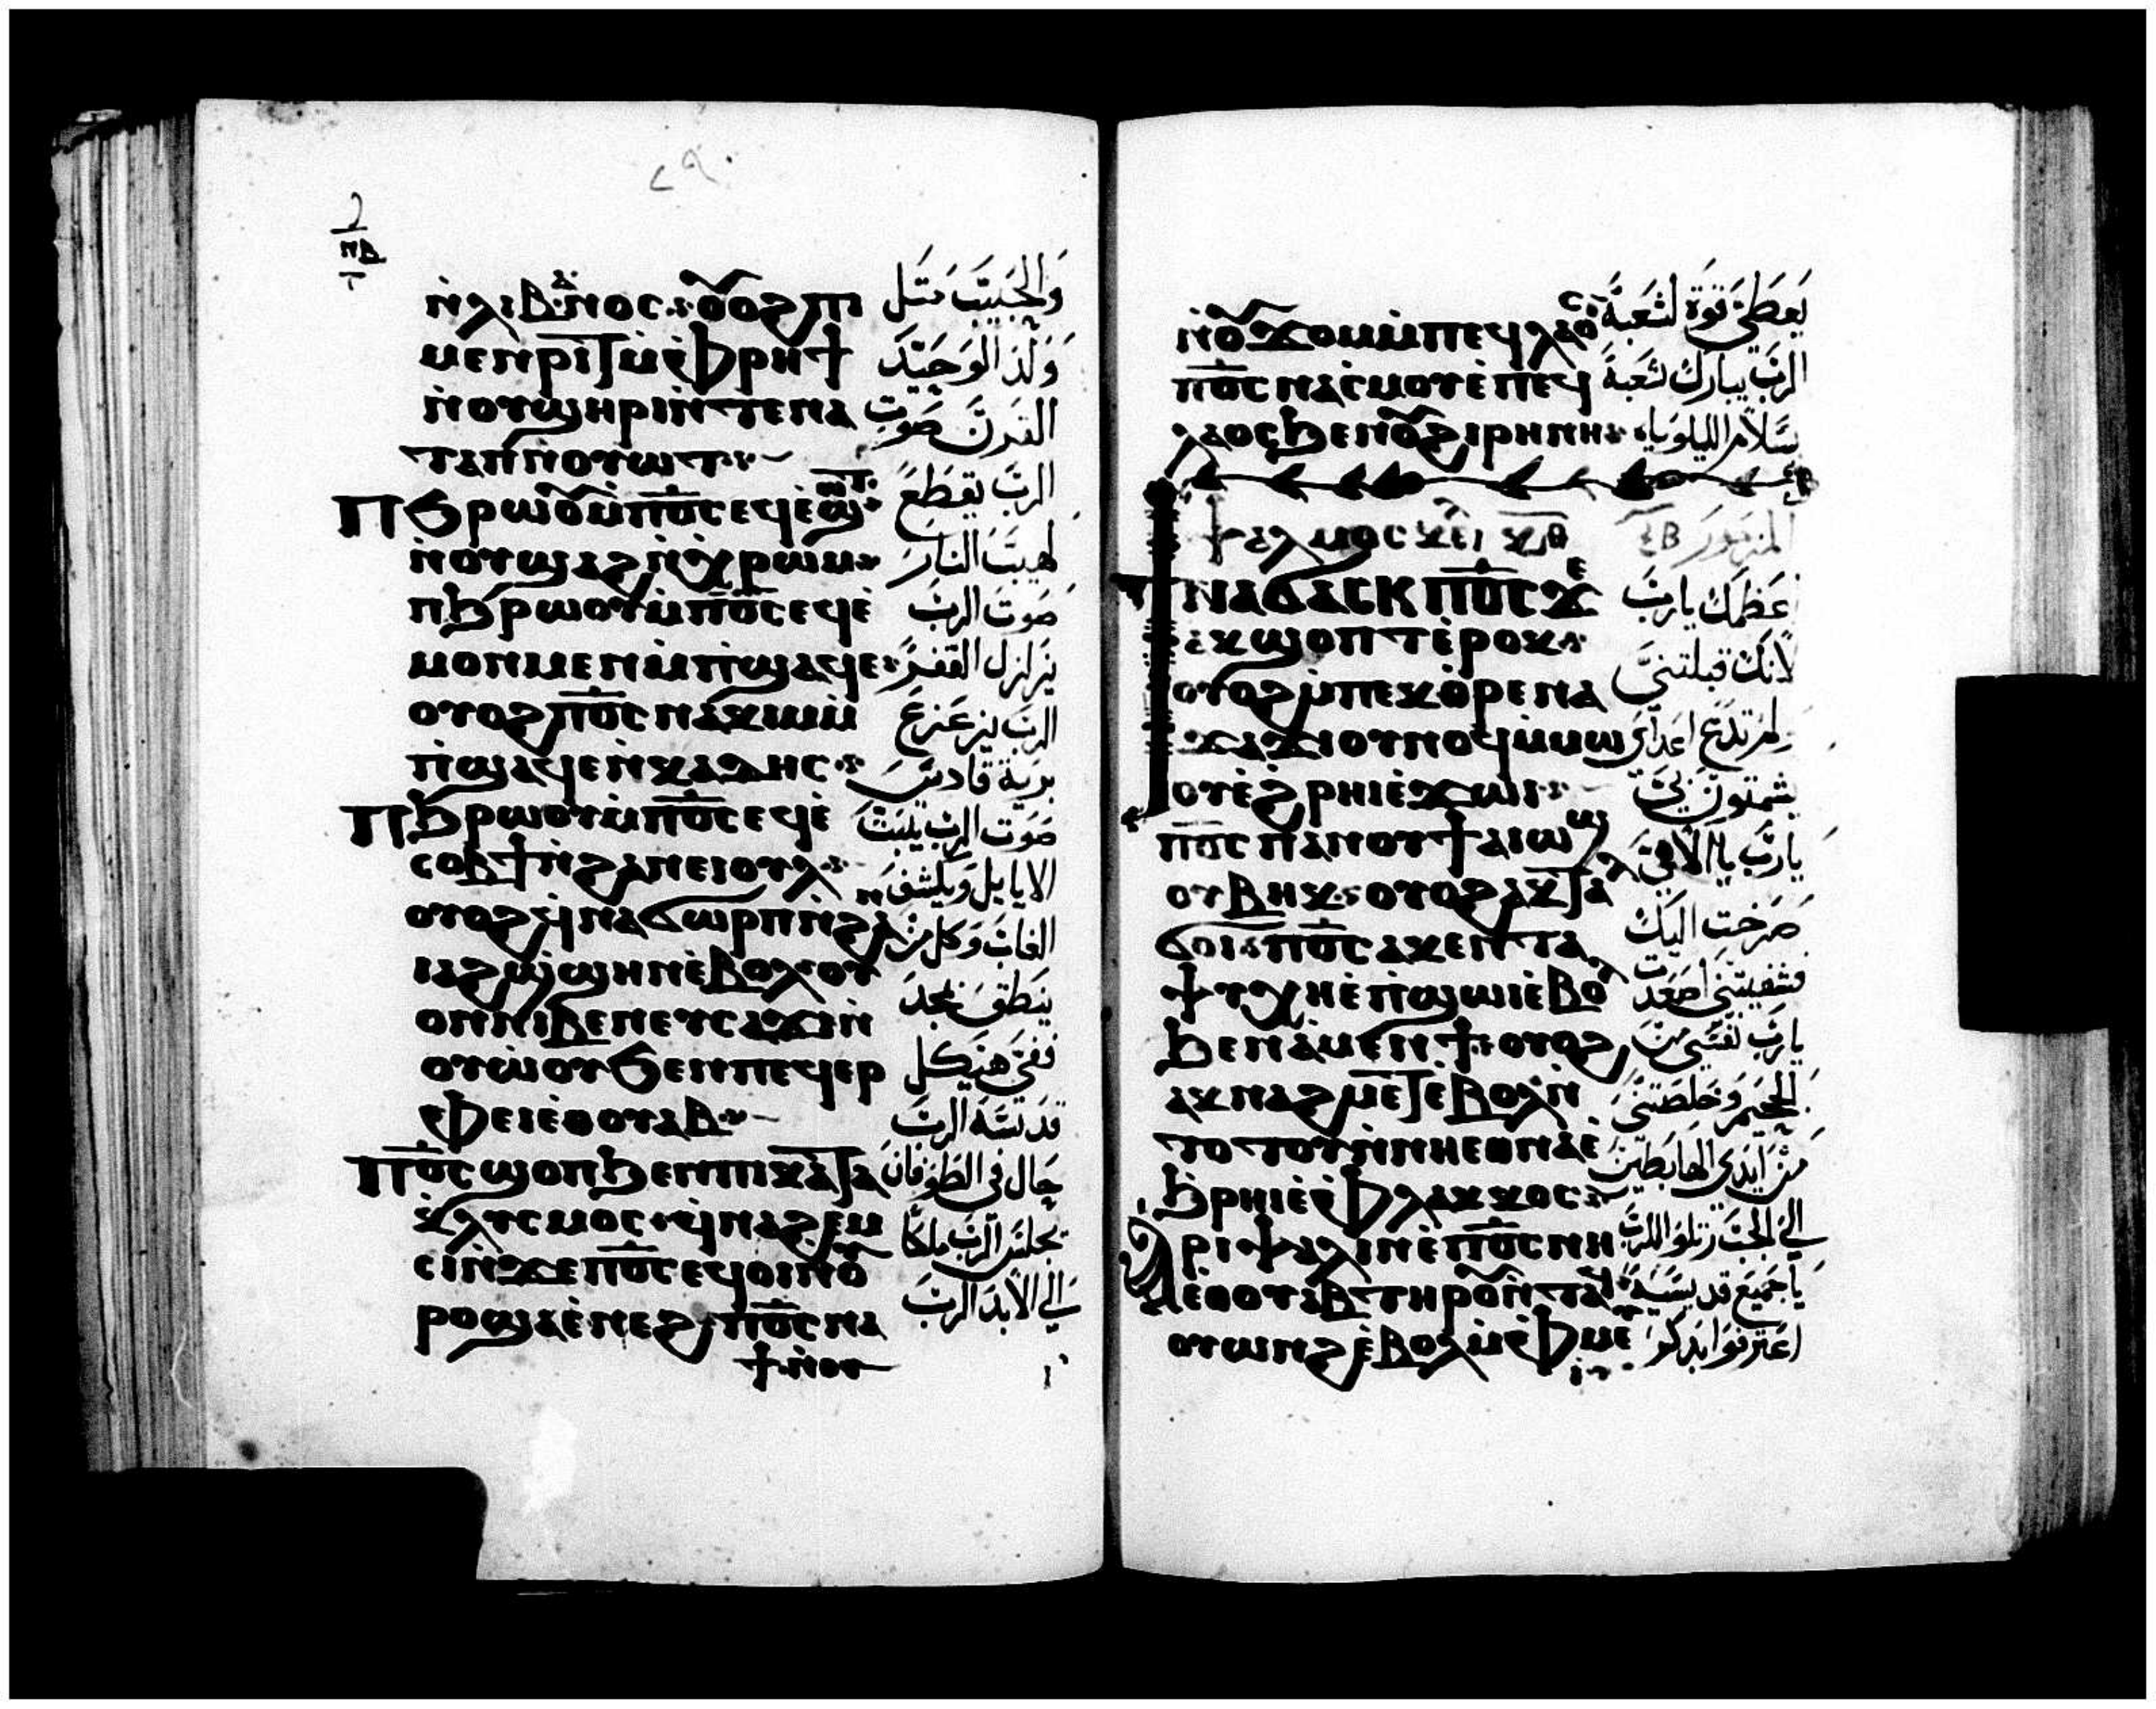 ٨٩
ⲡⲃ
ⲛ̀ⲗⲓⲃⲁⲛⲟⲥ ⲟⲩⲟϩ ⲡⲓ
ⲙⲉⲛⲣⲓⲧ ⲙ̀ⲫⲣⲏϯ
ⲛ̀ⲟⲩϣⲏⲣⲓ ⲛ̀ⲧⲉ ⲛⲁ
ⲡⲓⲧⲁⲡ ⲛⲟⲩⲱⲧ
ⲡϧⲣⲱⲟⲩ ⲙ̀ⲡ̅ⲟ̅ⲥ̅ ⲉϥⲉ̀ϣⲱⲧ
ⲛ̀ⲟⲩϣⲁϩ ⲛ̀ⲭⲣⲱⲙ
ⲡϧⲣⲱⲟⲩ ⲙ̀ⲡ̅ⲟ̅ⲥ̅ ⲉϥⲉ̀
ⲙⲟⲛⲙⲉⲛ ⲙ̀ⲡϣⲁϥⲉ
ⲟⲩⲟϩ ⲡ̅ⲟ̅ⲥ̅ ⲛⲁⲕⲓⲙ ⲙ̀
ⲡϣⲁϥⲉ ⲛ̀ⲕⲁⲇⲏⲥ
ⲡϧⲣⲱⲟⲩ ⲙ̀ⲡ̅ⲟ̅ⲥ̅ ⲉϥⲉ̀
ⲥⲟⲃϯ ⲛ̀ϩⲁⲛⲉⲓⲟⲩⲗ
ⲟⲩⲟϩ ϥⲛⲁϭⲱⲣⲡ ⲛ̀ϩⲁⲛ
ⲓⲁϩϣϣⲏⲛ ⲉ̀ⲃⲟⲗ ⲟⲩ
ⲟⲛ ⲛⲓⲃⲉⲛ ⲉⲩⲥⲁϫⲓ ⲛ̀
ⲟⲩⲱ̀ⲟⲩ ϧⲉⲛ ⲡⲉϥⲉⲣ
ⲫⲉⲓ ⲉⲑⲟⲩⲁⲃ
ⲡ̅ⲟ̅ⲥ̅ ϣⲟⲡ ϧⲉⲛ ⲡⲓⲕⲁⲧⲁ
ⲕⲗⲩⲥⲙⲟⲥ ϥⲛⲁϩⲉⲙ
ⲥⲓ ⲛ̀ϫⲉ ⲡ̅ⲟ̅ⲥ̅ ⲉϥⲟⲓ ⲛ̀ⲟⲩ
ⲣⲟ ϣⲁ ⲉ̀ⲛⲉϩ ⲡ̅ⲟ̅ⲥ̅ ⲛⲁ
ϯ ⲛ̀ⲟⲩ
والحبيب مثل
ولد الوحيد
القرن صوت
الرب يقطع
لهيب النار
صوت الرب
يزلزل القفر
الرب يزعزع
برية قادس
صوت الرب يثبت
الايايل ويكشف
الغاب وكل من
ينطق بمجد
ففي هيكل
قدسه الرب
حال في الطوفان
يجلس الرب ملكا
الي الابد الرب
ⲛ̀ⲟⲩϫⲟⲙ ⲙ̀ⲡⲉϥⲗⲁⲟⲥ
ⲡ̅ⲟ̅ⲥ̅ ⲛⲁⲥ̀ⲙⲟⲩ ⲉ̀ⲡⲉϥ
ⲗⲁⲟⲥ ϧⲉⲛ ⲟⲩϩⲓⲣⲏⲛⲏ
ⲯⲁⲗⲙⲟⲥ ⲕ̅ⲑ̅
ϯⲛⲁϭⲁⲥⲕ ⲡ̅ⲟ̅ⲥ̅ ϫⲉ
ⲁⲕϣⲟⲡⲧ ⲉ̀ⲣⲟⲕ
ⲟⲩⲟϩ ⲙ̀ⲡⲉⲕⲟ̀ⲣⲉ ⲛⲁ
ϫⲁϫⲓ ⲟⲩⲛⲟϥ ⲙ̀ⲙⲱ
ⲟⲩ ⲉ̀ϩⲣⲏⲓ ⲉ̀ϫⲱⲓ
ⲡ̅ⲟ̅ⲥ̅ ⲡⲁⲛⲟⲩϯ ⲁⲓⲱϣ
ⲟⲩⲃⲏⲕ ⲟⲩⲟϩ ⲁⲕⲧⲁⲗ
ϭⲟⲓ ⲡ̅ⲟ̅ⲥ̅ ⲁⲕⲉⲛ ⲧⲁ
ⲯⲩⲭⲏ ⲉ̀ⲡϣⲱⲓ ⲉ̀ⲃⲟⲗ
ϧⲉⲛ ⲁ̀ⲙⲉⲛϯ ⲟⲩⲟϩ
ⲁⲕⲛⲁϩⲙⲉⲧ ⲉ̀ⲃⲟⲗ ⲛ̀
ⲧⲟⲧⲟⲩ ⲛ̀ⲛⲏⲉⲑⲛⲁ ⲉ̀
ϧⲣⲏⲓ ⲉ̀ⲫⲗⲁⲕⲕⲟⲥ
ⲁⲣⲓⲯⲁⲗⲓⲛ ⲉ̀ⲡ̅ⲟ̅ⲥ̅ ⲛⲏ
ⲉⲑⲟⲩⲁⲃ ⲧⲏⲣⲟⲩ ⲛ̀ⲧⲁϥ
ⲟⲩⲱⲛϩ ⲉ̀ⲃⲟⲗ ⲙ̀ⲫⲙⲉⲩ
يعطي قوة لشعبه
الرب يبارك شعبه
بسلام الليلويا
المزمور
اعظمك يارب
لانك قبلتني
لم تدع اعداي
يشمتون بي
يارب يا الاهي
صرخت اليك
فشفيتني اصعدت
يارب نفسي من
الجحيم وخلصتني
من ايدي الهابطين
الي الجب رتلوا للرب
يا جميع قديسيه
اعترفوا بذكر